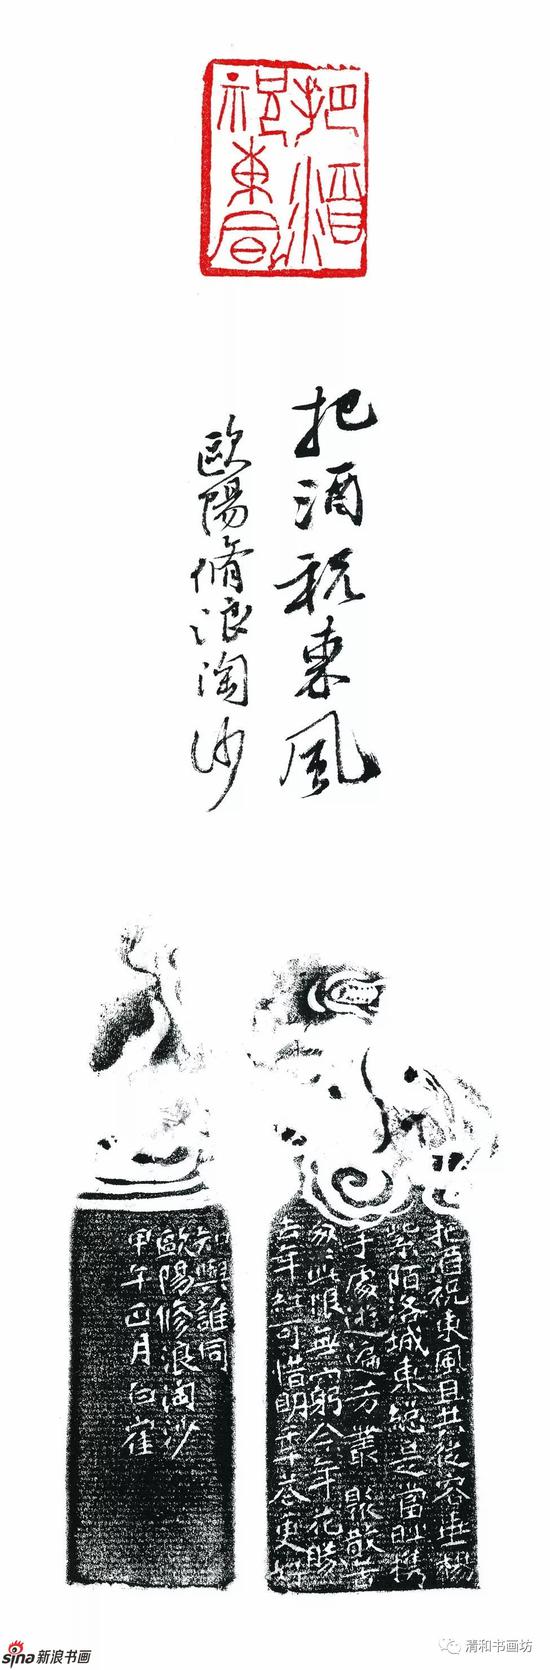 把酒
祝東風
把酒祝東風
歐陽脩浪淘沙
把酒祝東風且共從容垂楊
紫陌洛城東總是當時攜
手處遊遍芳叢聚散苦
匆匆此恨無窮今年花勝
去年紅可惜明年花更好
知與誰同
歐陽修浪淘沙
甲午正月白
sina新浪书画
清和书画坊